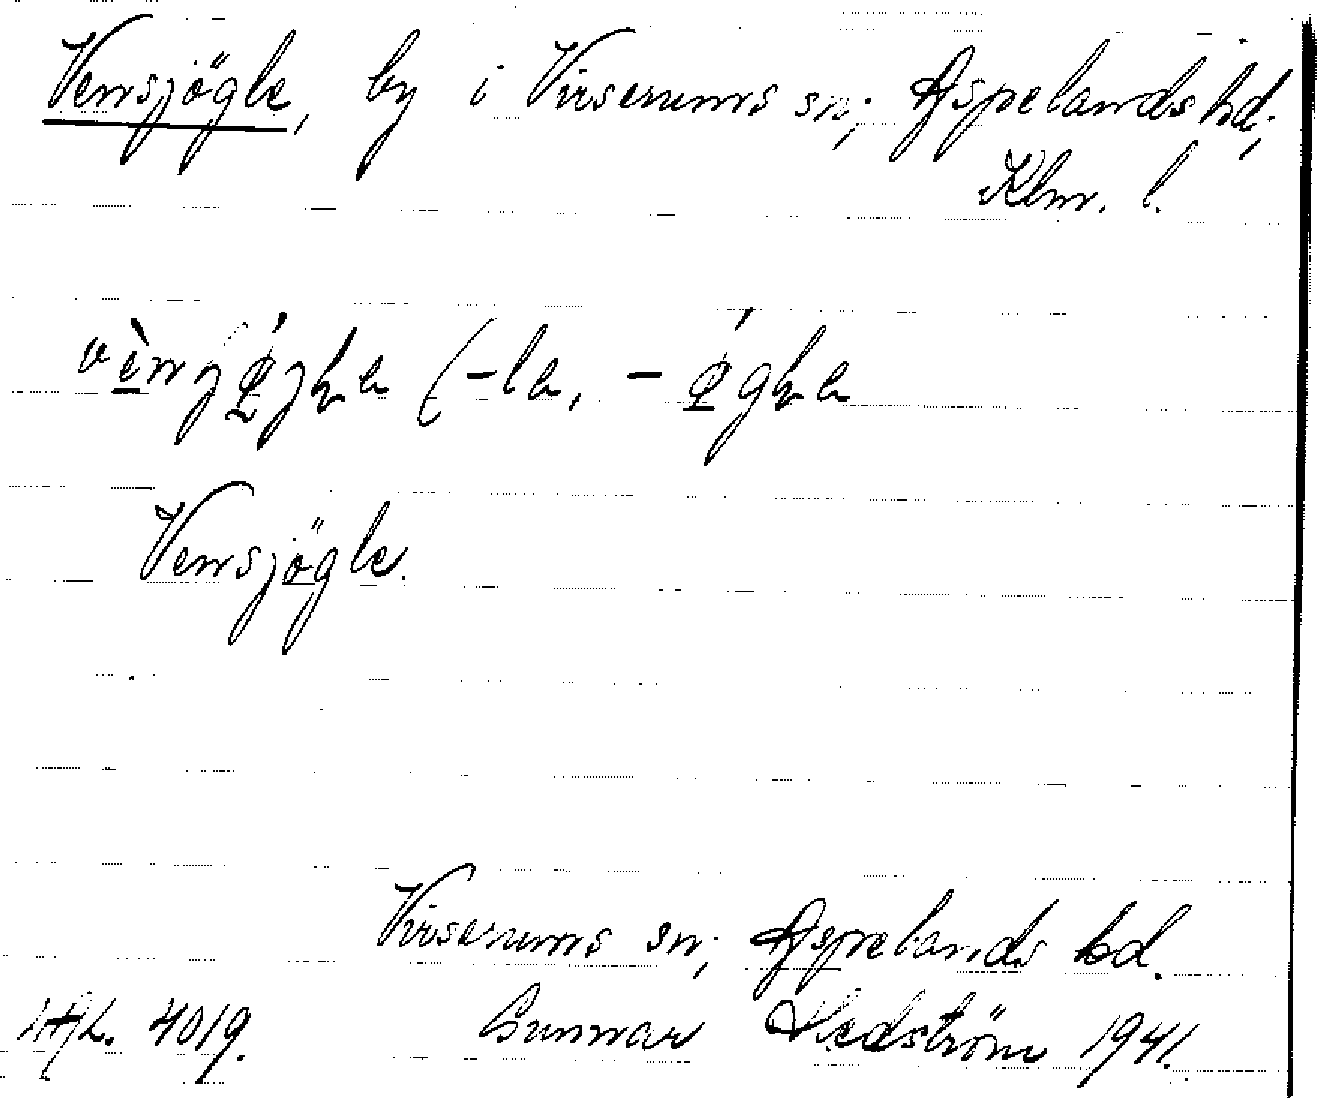 Vensjögle, by i Virserums sn; Aspelands hd;
Klm. l.
Vensjögle.
Virserums sn; Aspelands hd.
4019. Gunnar Hedström 1941.